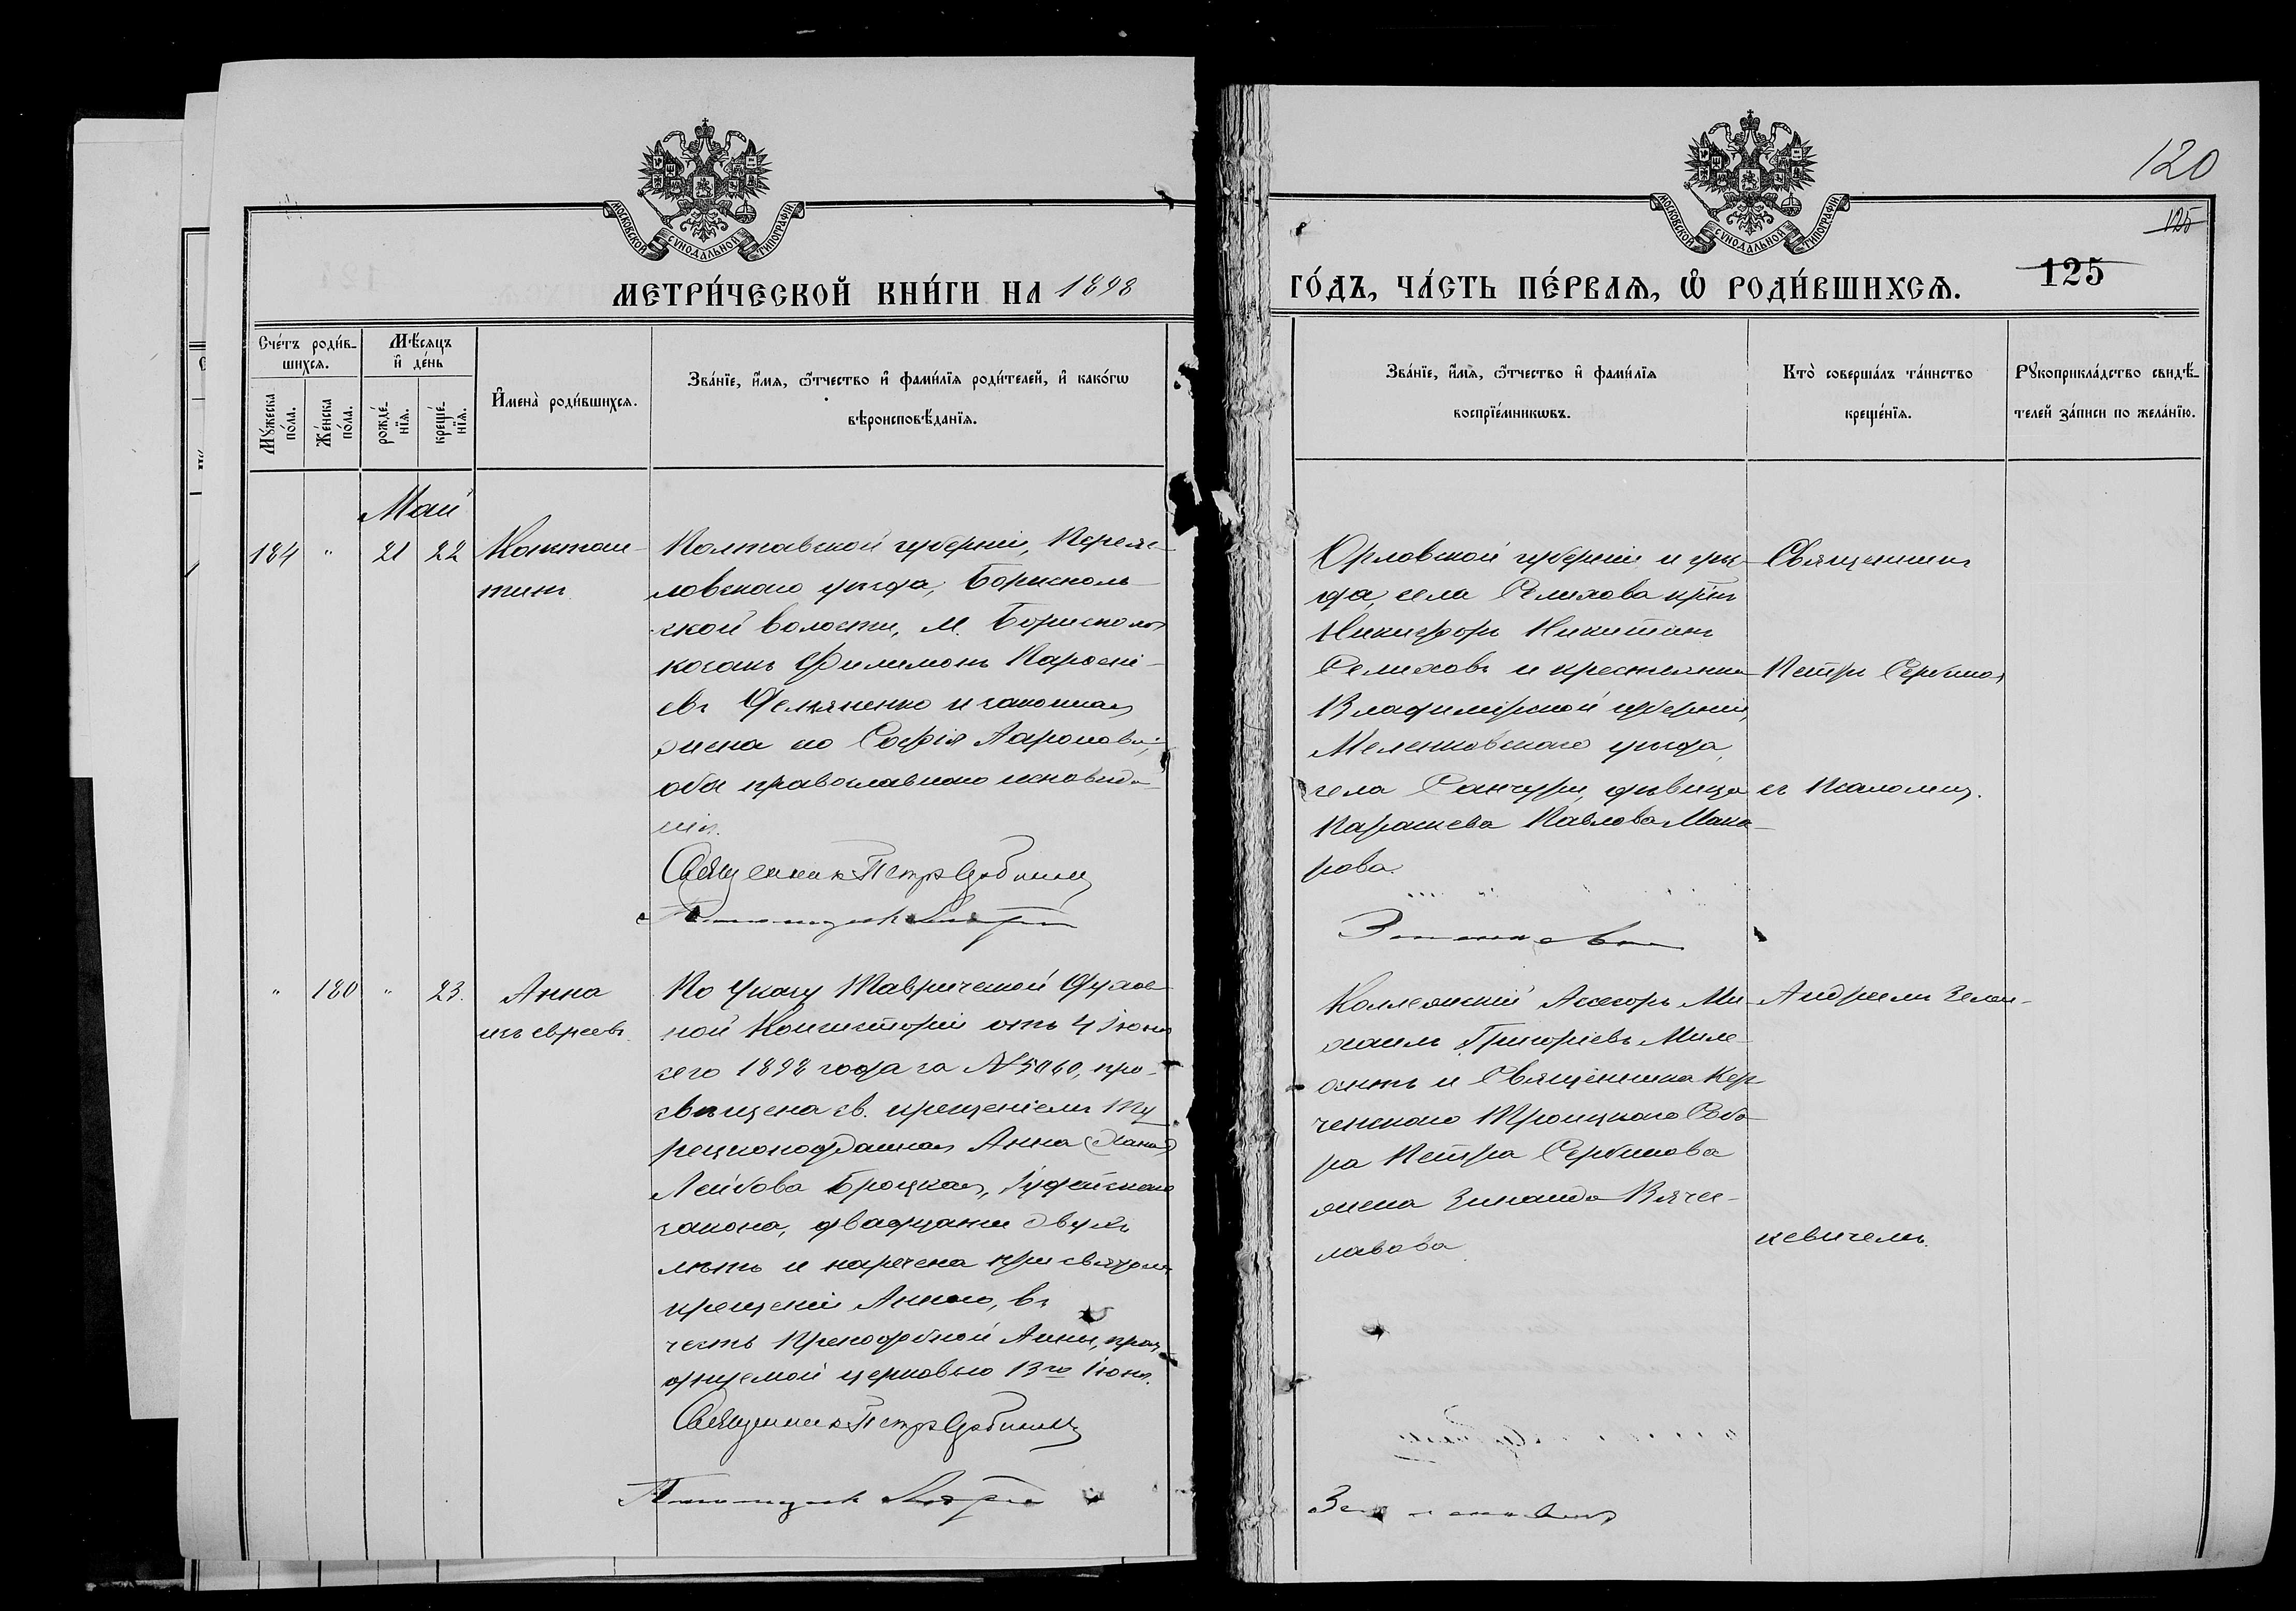 МОСКОВСКОЙ СѴНОДАЛЬНОЙ ТИПОГРАФІИ
МЕТРИ́ЧЕСКОЙ КНИ́ГИ НА 1898
Сче́тъ роди́в-
шихсѧ.
Мѣ́сѧцъ
и҆ де́нь
Мꙋ́жеска
по́ла.
Же́нска
по́ла.
рожде́-
нїѧ.
креще́-
нїѧ.
И҆мена̀ роди́вшихсѧ.
Зва́нїе, и҆́мѧ, ѻ҆́тчество и҆ фамн́лїѧ роди́телей, и҆ како́гѡ
вѣроисповѣ́данїѧ.
Май
184 " 21 22 Констан-
тинъ
Полтавской губерніи, Переяс-
ловскаго уѣзда, Борисполь-
ской волости, м. Борисполя
козакъ Филимонъ
евъ и законная
жена его Софія Ааронова;
оба православнаго исповѣда-
нія.
Священник Петръ Сербинов
" 180 " 23. Анна
изъ евреевъ.
По Указу Таврической Духов-
ной Консисторіи отъ 4 Іюня
сего 1898 года за № 5060, про-
свѣщена св. крещеніемъ Ту-
рецкоподданная Анна (Хана)
Лейбова Броцкая, Іудейскаго
закона, двадцати двухъ
лѣтъ и наречена при святомъ
крещеніи Анною, въ
честь Преподобной Анны, праз-
днуемой церковью 13го Іюня.
Священник Петръ Сербинов
МОСКОВСКОЙ СѴНОДАЛЬНОЙ ТИПОГРАФІИ
120
125
125
ГО́ДЪ, ЧА́СТЬ ПЕ́РВАѦ, Ѡ҆ РОДИ́ВШИХСѦ.
Зва́нїе, и҆́мѧ, ѻ҆́тчество и҆ фами́лїѧ
воспрїе́мникѡвъ.
Кто̀ соверша́лъ та́инство
креще́нїѧ.
Рꙋкоприкла́дство свидѣ́-
телей за́писи по жела́нїю.
Орловской губерніи и уѣз-
да, села Селихова
Никифоръ Никитинъ
Селиховъ и крестьянка
Владимірской губерніи,
Меленковскаго уѣзда,
села Санчуры, дѣвица
Павлова Мака-
рова.
Священникъ
Петръ Сербиновъ
съ Псаломщ.
Коллежскій Ассесоръ Ми-
хаилъ Григорьевъ Миле-
антъ и Священника Кер-
ченскаго Троицкаго Собо-
ра Петра Сербинова
жена Зинаида Вячес-
лавова
Андреемъ Зелен-
кевичемъ.